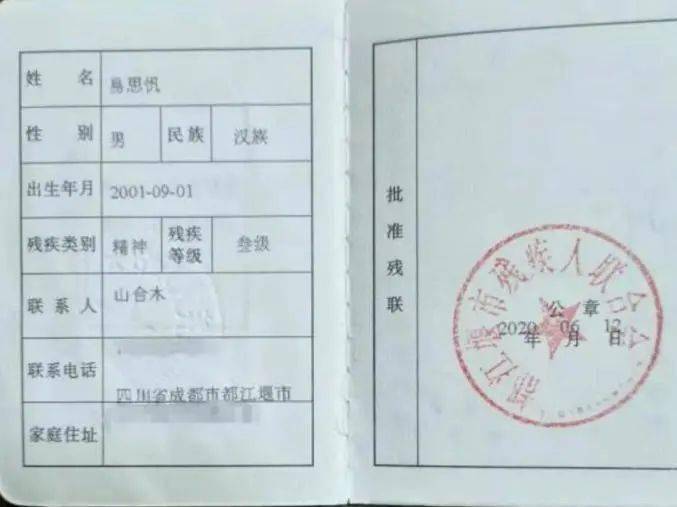 姓 名 易思
性 别 男 民族 汉族
出生年月 2001-09-01
残疾类别 精神 残疾等级 叁级
联系人 山合木
联系电话
四川省成都市都江堰市
家庭住址
批准残联
都江堰市残疾人联合会
公 章
2020 06 12
年 月 日